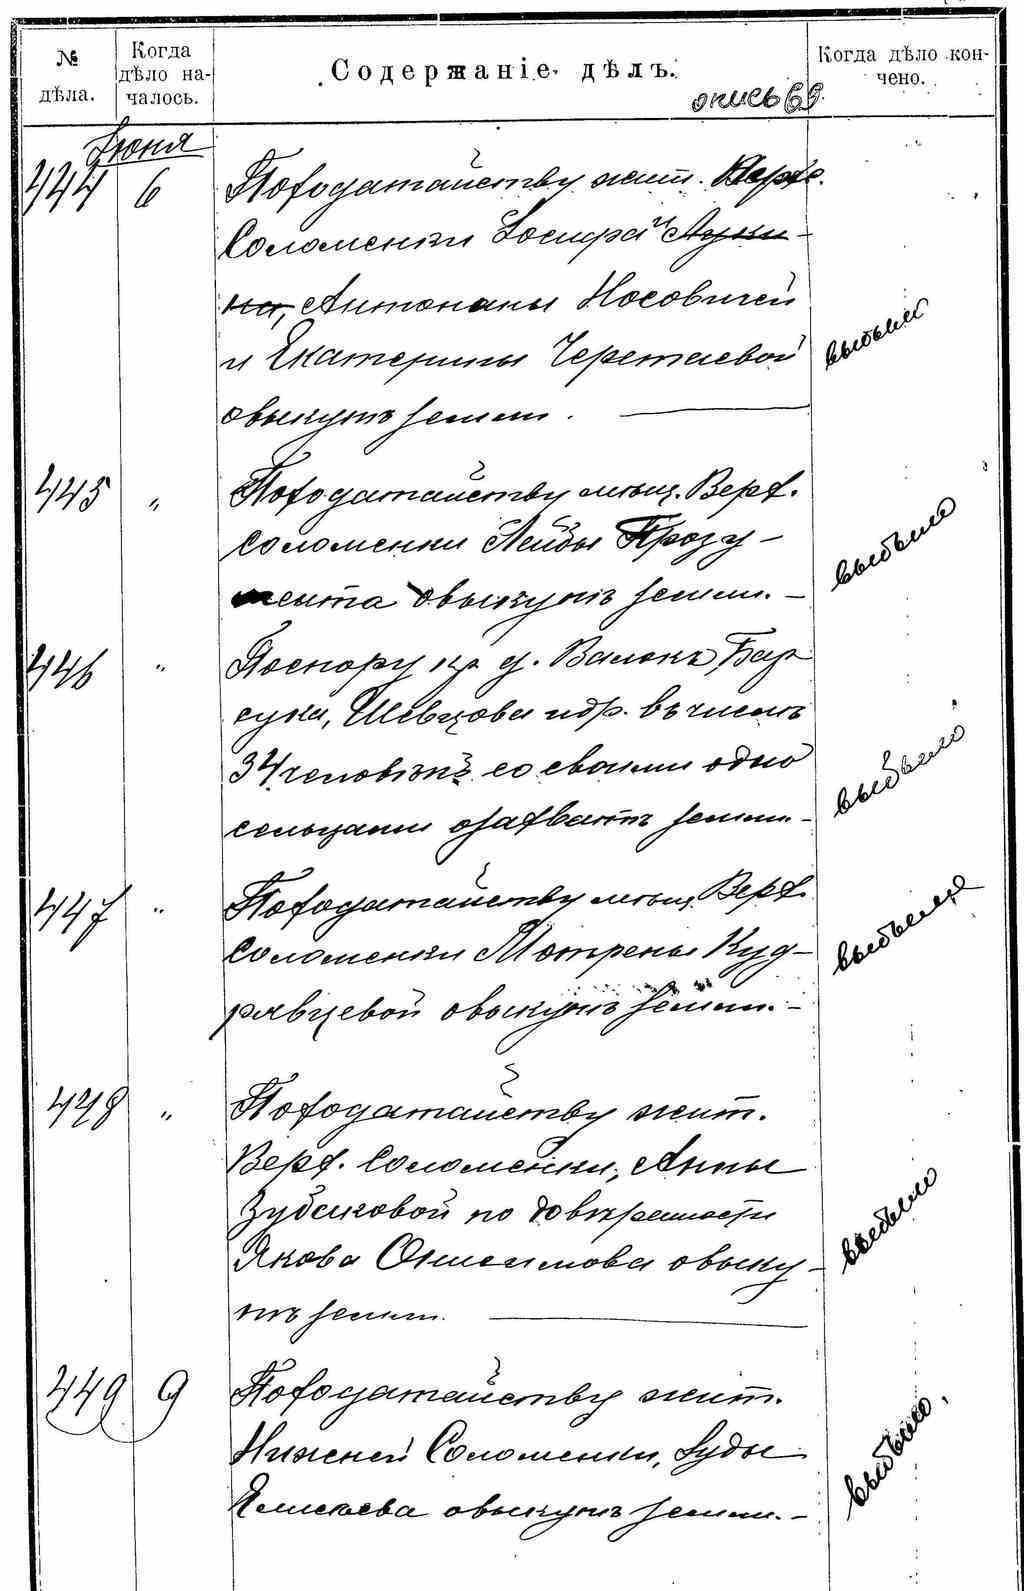 № дѣла.
Когда дѣло на-
чалось.
Содержаніе дѣлъ.
Когда дѣло кон-
чено.
опись 69.
Іюня
444 6 По ходатайству жит. Верх.
Соломенки Іосифа Луки-
на, Антонины Носовичей
и Екатерины
о выкупѣ земли.
выбыло
445 „ По ходатайству мѣщ. Верх.
Соломенки Лейбы Прозу-
мента о выкупѣ земли.-
выбыло
446 „ По спору кр. д. Валокъ Бар
сука, Шевцова и др. въ числѣ
34 человѣкъ со своими одно
сельцами о захватѣ земли.-
выбыло
447 „ По ходатайству мѣщ. Верх.
Соломенки Мотрены Куд-
рявцевой о выкупѣ земли.-
выбыло
448 „ По ходатайству жит.
Верх. Соломенки, Анны
Зубиковой по довѣренности
Якова Онисимова о выку-
пѣ земли.
выбыло
449 9 По ходатайству жит.
Нижней Соломенки, Іуды
Елисеева о выкупѣ земли.-
выбыло.